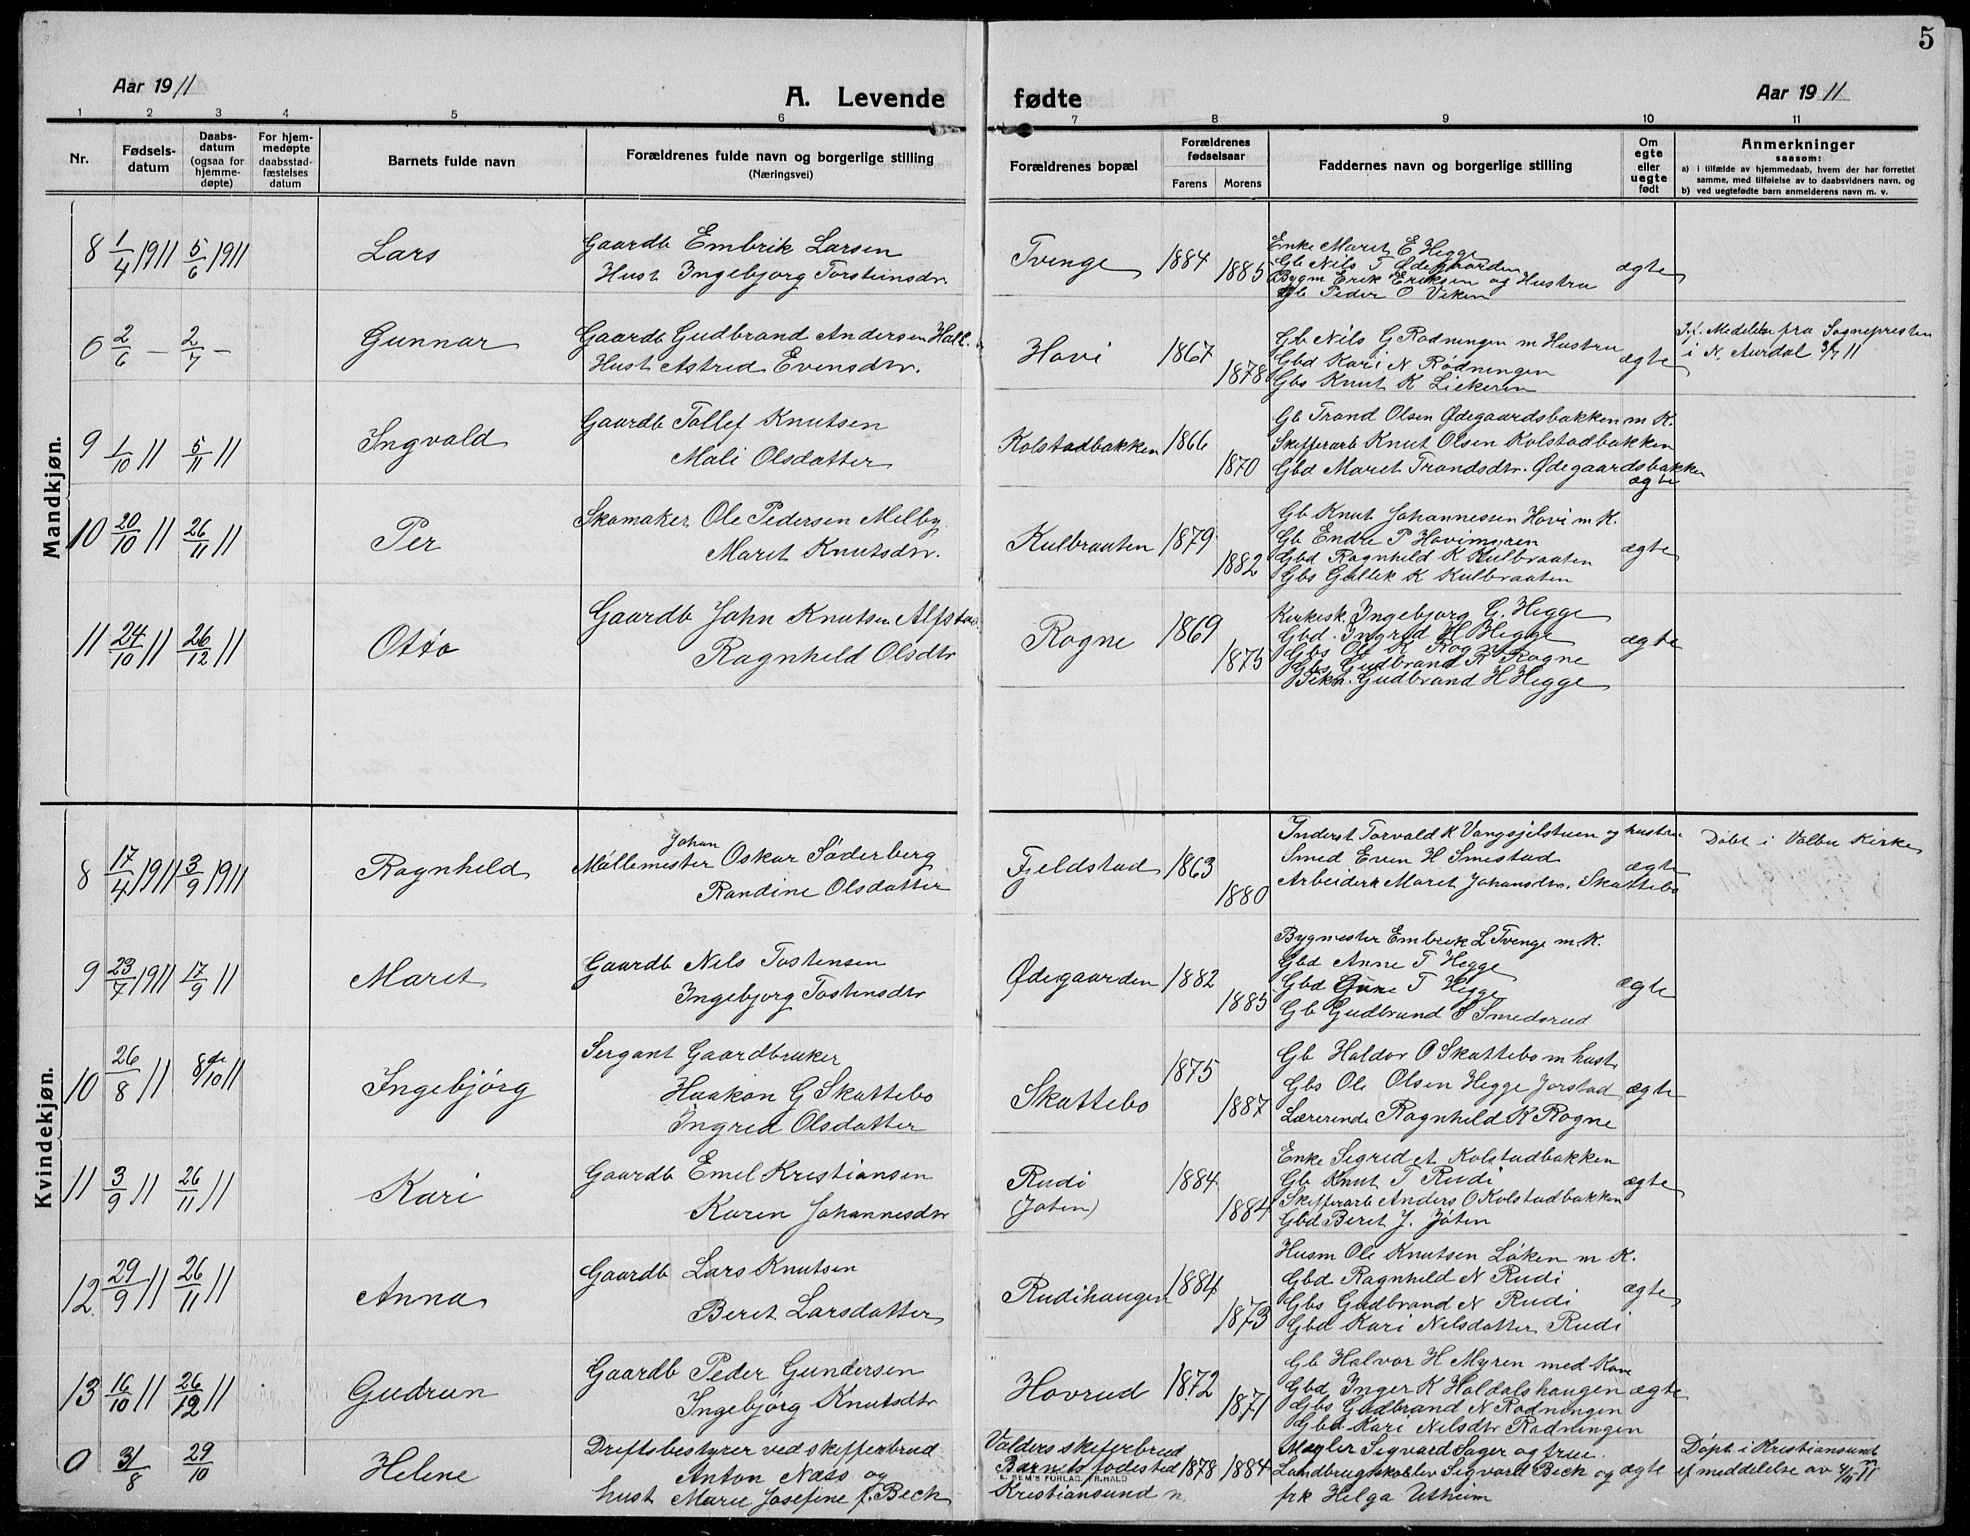 5
Aar 1911
A. Levende fødte
Aar 1911
1 2 3 4 5 6 7 8 9 10 11
Nr.
Fødsels-
datum
Daabs-
datum
(ogsaa for
hjemme-
døpte)
For hjem-
medøpte
daabsstad-
fæstelses
datum
Barnets fulde navn
Forældrenes fulde navn og borgerlige stilling
(Næringsvei)
Forældrenes bopæl
Forældrenes
fødselsaar
Farens Morens
Faddernes navn og borgerlige stilling
Om
egte
eller
uegte
født
Anmerkninger
saasom:
a) i tilfælde av hjemmedaab, hvem der har forrettet
samme, med tilføielse av to daabsvidners navn, og
b) ved uegtefødte barn anmelderens navn m. v.
Mandkjøn.
8 1/4 1911 5/6 1911
Lars
Gaardb Embrik Larsen
Hust Ingebjørg Torsteinsdr.
Tvenge 1884 1885
Enke Marit E Hegge
Gb Nils T Ødegaarden
Bygm Erik Eriksen og Hustru
Gb Peder O Viken
ægte
0 2/6 – 2/7 –
Gunnar
Gaardb Gudbrand Andersen Hall.
Hust Astrid Evensdtr.
Hovi 1867 1878
Gb Nils G Rødningen m Hustru
Gbd Kari N Rødningen
Gbs Knut K Liekeren
ægte
Medelelse fra Sognepresten
i N. Aurdal 3/7 11
9 1/10 11 5/11 11
Ingvald
Gaardb Tollef Knutsen
Mali Olsdatter
Kolstadbakken 1866 1870
Gb Trond Olsen Ødegaardsbakken m K.
Skifferarb Knut Olsen Kolstadbakken
Gbd Marit Trondsdtr. Ødegaardsbakken
ægte
10 20/10 11 26/11 11
Per
Skomaker Ole Pedersen Melby
Marit Knutsdtr.
Kulbraaten 1879 1882
Gb Knut Johannessen Hovi m K.
Gb Endre P Hovimoren
Gbd Ragnhild K Kulbraaten
Gbs Gullik K Kulbraaten
ægte
11 24/10 11 26/12 11
Otto
Gaardb John Knutsen Alfstad.
Ragnhild Olsdtr
Rogne 1869 1875
Kirkesk. Ingebjørg G. Hegge
Gbd. Ingrid H Hegge
Gbs Ole K Rogne
Gbs Gudbrand K Rogne
Gudbrand H Hegge
ægte
Kvindekjøn.
8 17/4 1911 3/9 1911
Ragnhild
Johan
Møllemester Oskar Søderberg
Randine Olsdatter
Fjeldstad 1863 1880
Inderst Torvald K Vangsjelstuen og hustru
Smed Even H Smestad
Arbeiderk Marit Johansdtr. Skattebo
ægte
Døbt i Volbu Kirke
9 23/7 1911 17/9 11
Marit
Gaardb Nils Tostensen
Ingebjørg Tostensdtr
Ødegaarden 1882 1885
Bygmester Embrik L Tvenge m K.
Gbd Anne T Hegge
Gbd Gune T Hegge
Gb Gudbrand S Smedsrud
ægte
10 26/8 11 8de/10 11
Ingebjørg
Sergant Gaardbruker
Haakon G Skattebo
Ingrid Olsdatter
Skattebo 1875 1887
Gb Haldor O Skattebo m hustr
Gbs Ole Olsen Hegge Jorstad
Lærerinde Ragnhild K Rogne
ægte
11 3/9 11 26/11 11
Kari
Gaardb Emil Kristiansen
Karen Johannesdtr
Rudi
(Joten) 1884 1884
Enke Sigrid A Kolstadbakken
Gb Knut T Rudi
Skifferarb Anders O Kolstadbakken
Gbd Berit J. Joten
ægte
12. 29/9 11 26/11 11
Anna
Gaardb Lars Knutsen
Berit Larsdatter
Rudihaugen 1884 1873
Husm Ole Knutsen Løken m K.
Gbd Ragnhild N Rudi
Gbs Gudbrand N Rudi
Gbd Kari Nilsdatter Rudi
ægte
13 16/10 11 26/12 11
Gudrun
Gaardb Peder Gundersen
Ingebjørg Knutsdtr
Hovrud 1872 1871
Gb Halvor H Myren med Kone
Gbd Inger K Haldalshaugen
Gbs Gudbrand N Rødningen
Gbd Kari Nilsdtr Rødningen
ægte
0 31/8 29/10
Helene
Driftsbestyrer ved skifferbrud
Anton Næss og
hust Marie Josefine f. Beck
Valders skiferbrud
Barnets fødested
E. SEM'S FORLAG, FR.HALD
Kristiansund n.
1878 1884
Mægler Sigvard Sager og frue.
Landbrugsskoelev Sigvard Beck og
frk Helga Utheim
ægte
Døpt i Kristiansund
ef meddelelse av 4/11 11